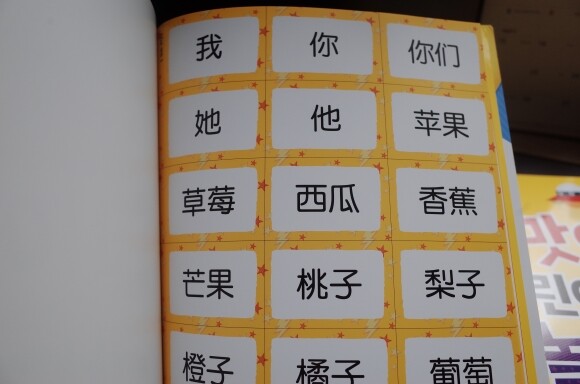 我 你 你们
她 他 苹果
草莓 西瓜 香蕉
芒果 桃子 梨子
橙子 橘子 葡萄
맛
린